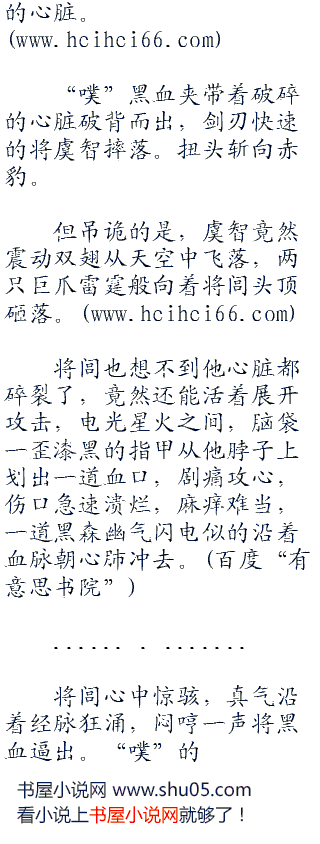 的心脏。
(www.hcihci66.com)
“噗”黑血夹带着破碎
的心脏破背而出，剑刃快速
的将虞智摔落。扭头斩向赤
豹。
但吊诡的是，虞智竟然
震动双翅从天空中飞落，两
只巨爪雷霆般向着将闾头顶
砸落。(www.hcihci66.com)
将闾也想不到他心脏都
碎裂了，竟然还能活着展开
攻击，电光星火之间，脑袋
一歪漆黑的指甲从他脖子上
划出一道血口，剧痛攻心，
伤口急速溃烂，麻痒难当，
一道黑森幽气闪电似的沿着
血脉朝心肺冲去。(百度“有
意思书院”)
······ · ·······
将闾心中惊骇，真气沿
着经脉狂涌，闷哼一声将黑
血逼出。“噗”的
书屋小说网 www.shu05.com
看小说上书屋小说网就够了！